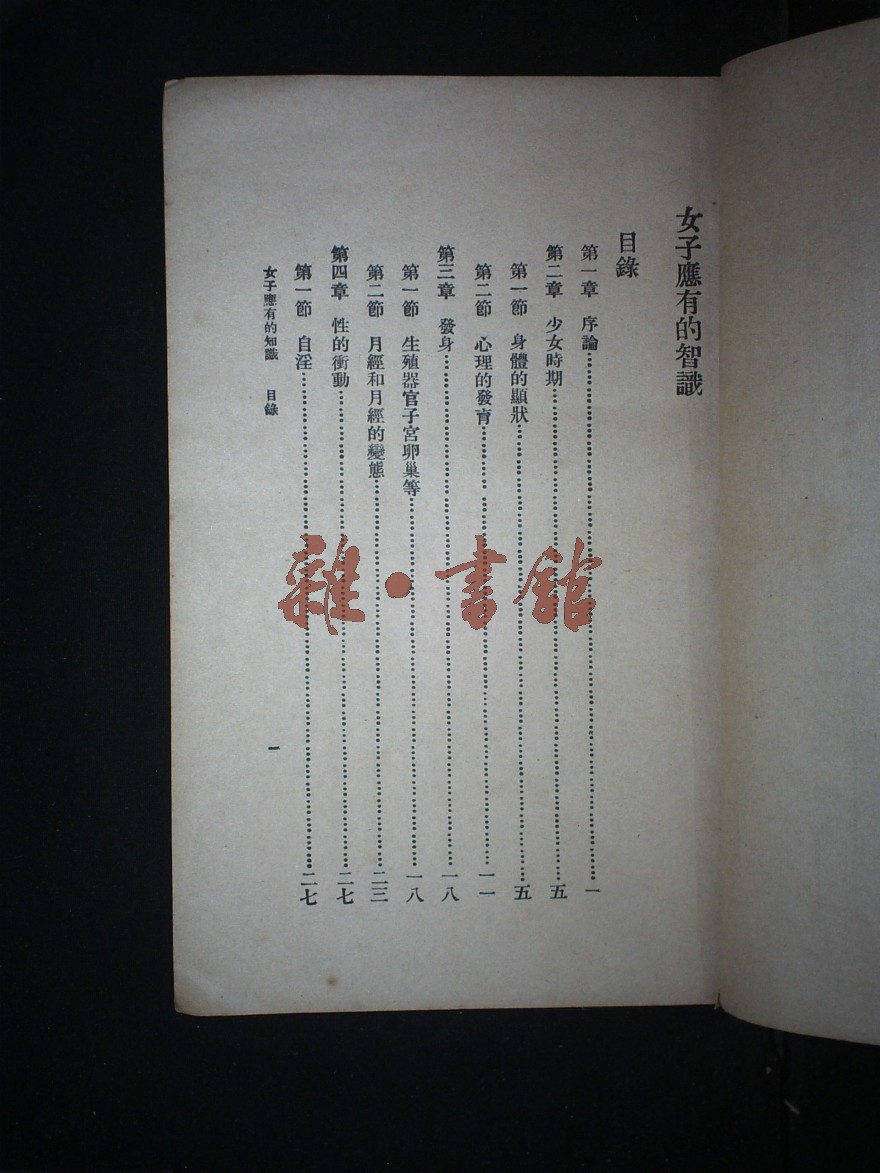 女子應有的智識
目錄
第一章 序論……一
第二章 少女時期……五
第一節 身體的顯狀……五
第二節 心理的發育……一一
第三章 發身……一八
第一節 生殖器官子宮卵巢等……一八
第二節 月經和月經的變態……二三
第四章 性的衝動……二七
第一節 自淫……二七
女子應有的知識 目錄
一
雜·書館